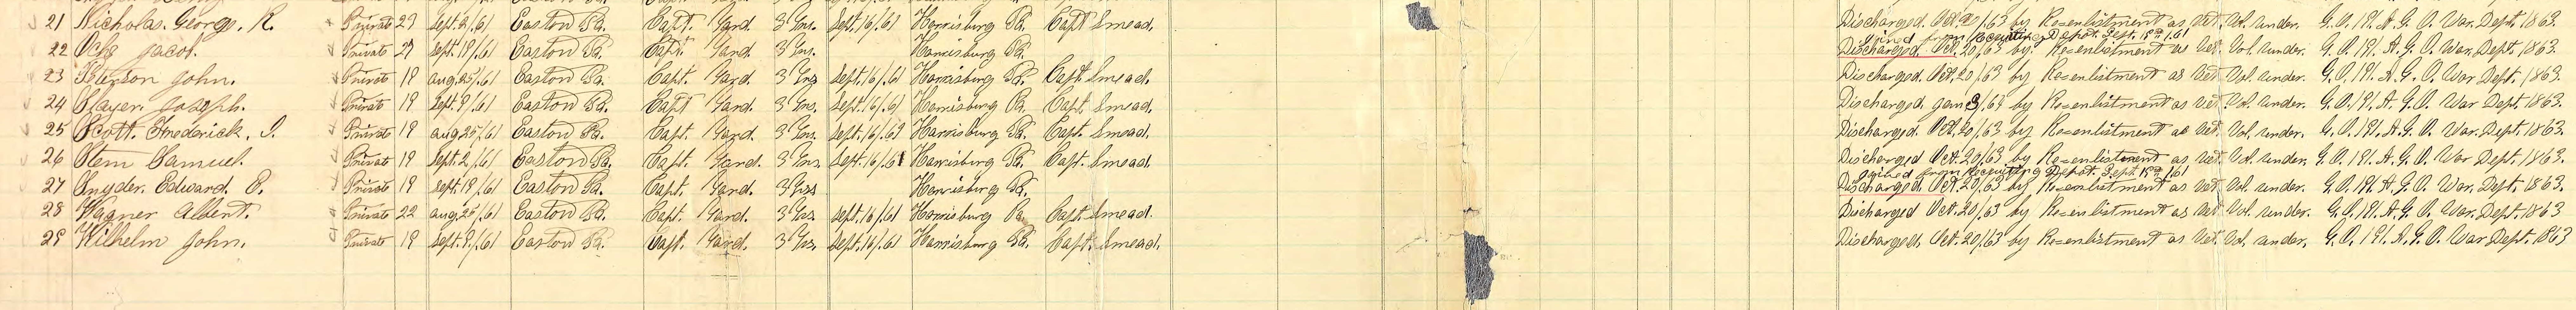 21 Nicholas. George. R. Private 27 Sept. 2/.61 Easton Pa. Capt. Yard 3 Yrs. Sept. 16/.61 Harrisburg Pa. Capt Smead. Discharged. Oct. /.63 by Reenlistment as Vet. Vol. under. G. O. 191. A. G. O. War. Dept. 1863.
Joined from Recruiting Depot. Sept. 18th/.61
22 Ochs Jacob. Private 27 Sept. 19/.61 Easton Pa. Capt. Yard 3 Yrs. Harrisburg Pa. Discharged. Oct. 20/.63 by. Reenlistment as Vet. Vol. under. G. O. 191. A. G. O. War. Dept. 1863.
23 John. Private 19 Aug. 25/.61 Easton Pa. Capt. Yard 3 Yrs Sept. 16/.61 Harrisburg Pa. Capt. Smead. Discharged. Oct. 20/.63 by Reenlistment as Vet. Vol. under. G. O. 191. A. G. O. War Dept. 1863.
24 Joseph. Private 19 Sept. 9/.61 Easton Pa. Capt Yard. 3 Yrs. Sept. 16/.61 Harrisburg Pa. Capt. Smead. Discharged Jan 3/.64 by Reenlistment as Vet. Vol. under. G. O. 191. A. G. O. War Dept. 1863.
25 Scott. Frederick. J. Private 19 Aug. 25/.61 Easton Pa. Capt. Yard. 3 Yrs. Sept. 16/.61 Harrisburg Pa. Capt. Smead. Discharged. Oct. 20/.63 by Reenlistment as Vet. Vol. under. G. O. 191. A. G. O. War. Dept. 1863.
26 Stem Samuel. Private 19 Sept. 2/.61 Easton Pa. Capt. Yard. 3 Yrs. Sept. 16/.61 Harrisburg Pa. Capt. Smead. Discharged Oct. 20/.63 by Reenlistment as Vet. Vol. under. G. O. 191. A. G. O. War Dept. 1863.
Joined from Recruiting Depot. Sept. 18th/.61
27 Snyder. Edward. C. Private 19 Sept. 19/.61 Easton Pa. Capt. Yard. 3 Yrs Harrisburg Pa. Discharged. Oct. 20/.63 by Reenlistment as Vet. Vol. under. G. O. 191. A. G. O. War. Dept. 1863.
28 Wagner Albert. Private 22 Aug. 25/.61 Easton Pa. Capt. Yard. 3 Yrs Sept. 16/.61 Harrisburg Pa. Capt. Smead. Discharged Oct. 20/.63 by Reenlistment as Vet Vol. under. G. O. 191. A. G. O. War. Dept. 1863
29 Wilhelm John. Private 19 Sept. 9/.61 Easton Pa. Capt. Yard. 3 Yrs. Sept. 16/.61 Harrisburg Pa. Capt. Smead. Discharged. Oct. 20/.63 by Reenlistment as Vet. Vol. under. G. O. 191. A. G. O. War Dept. 1863